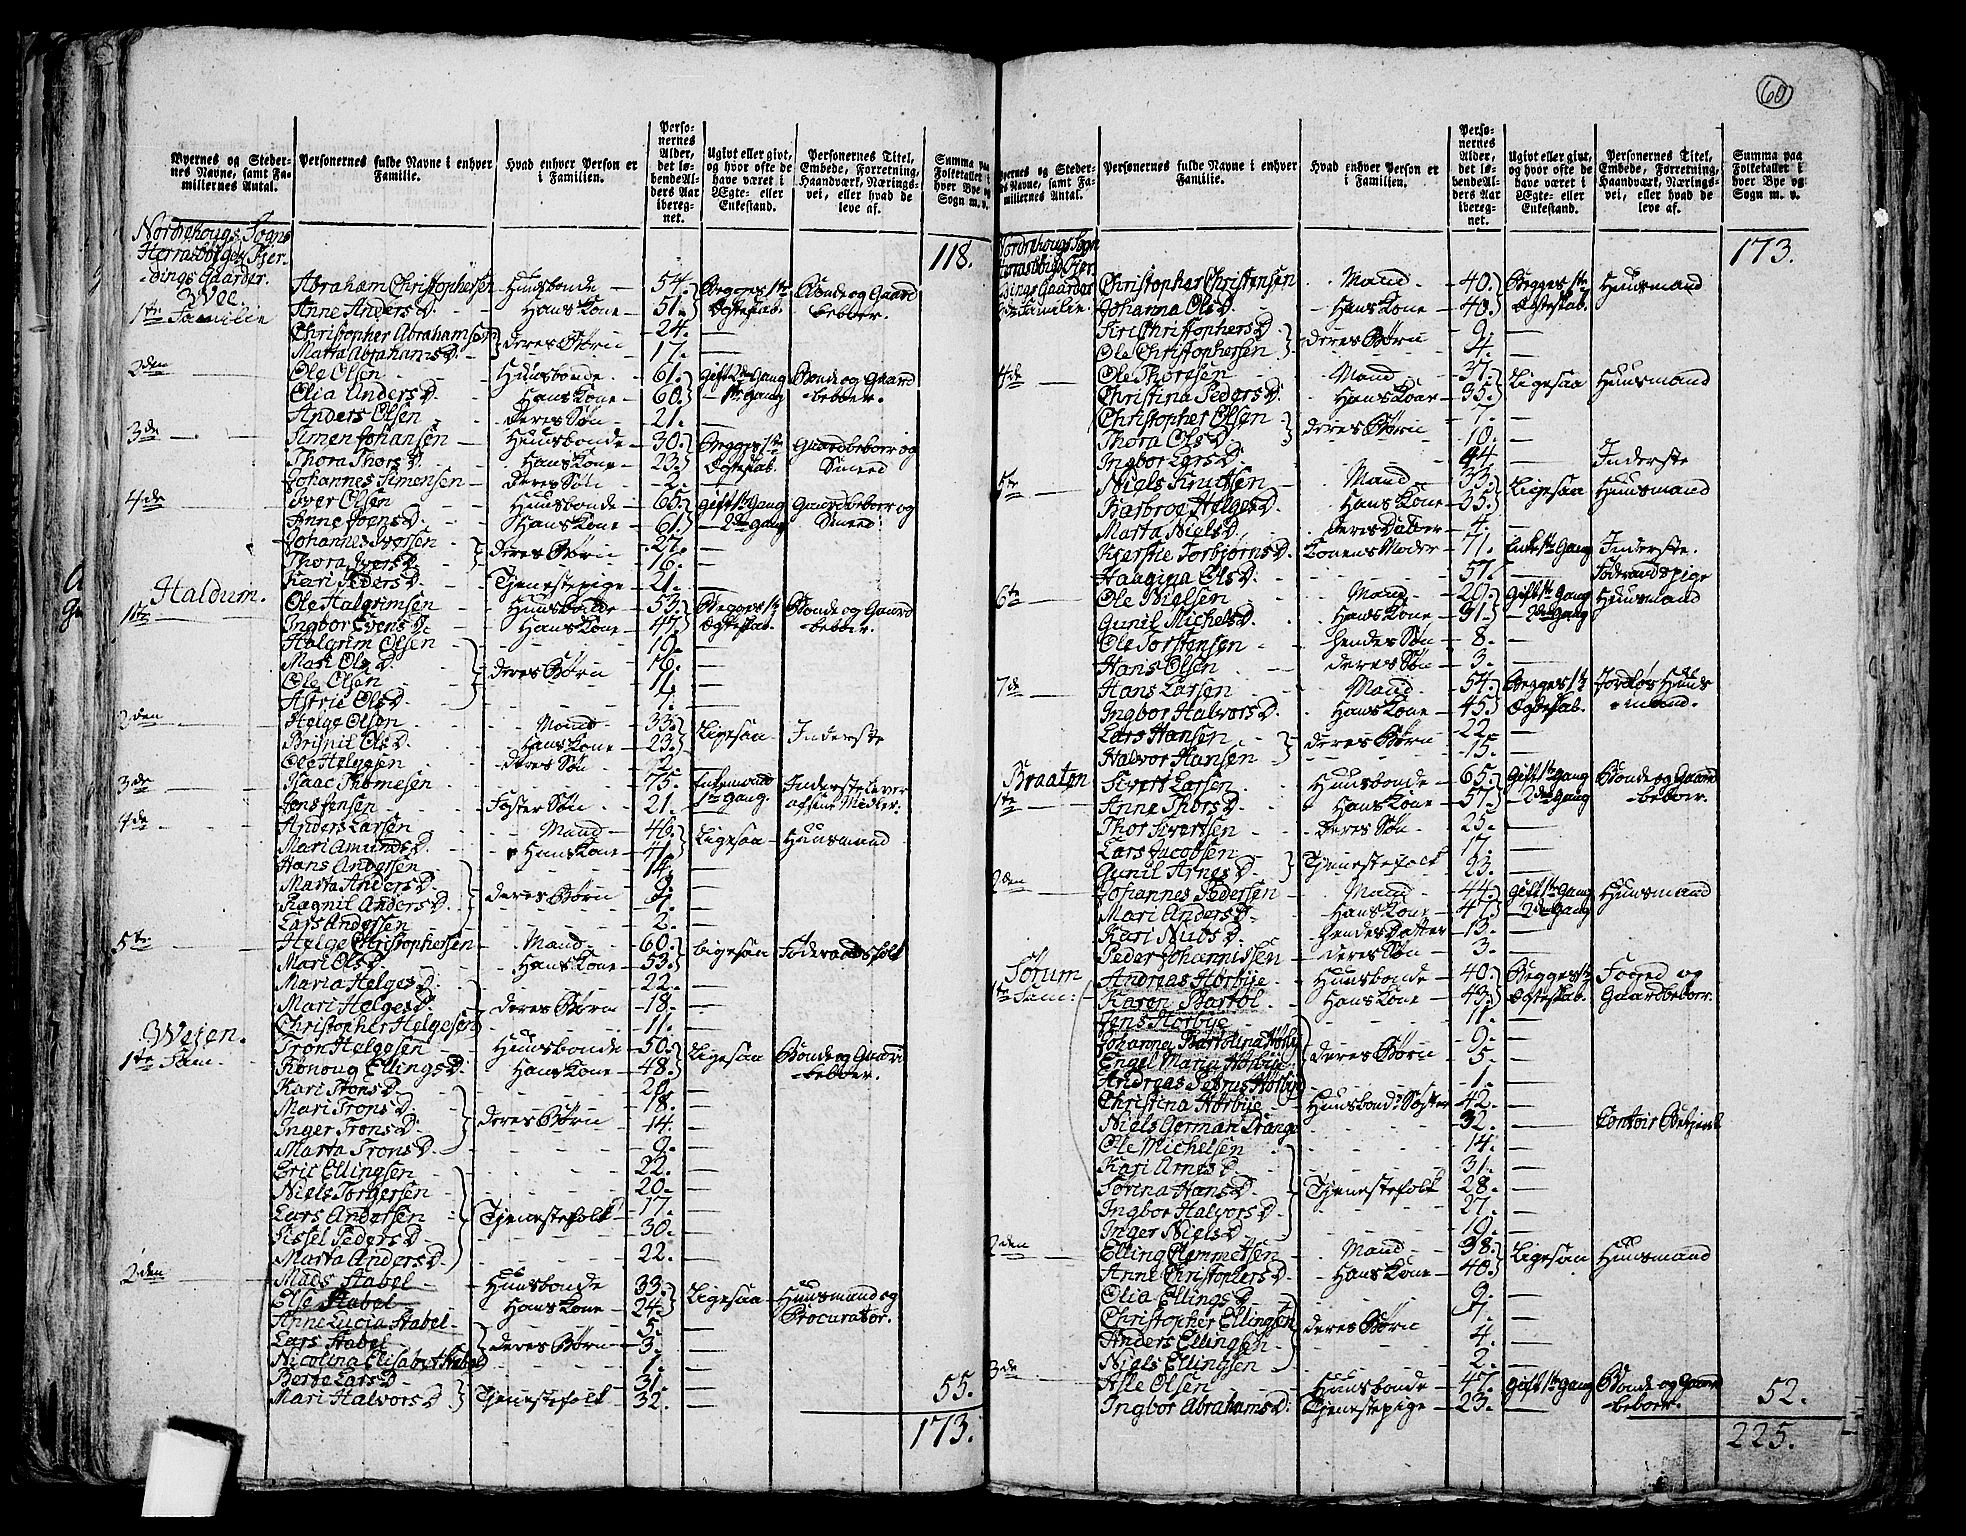 60
Byernes og Stedernes Navne, samt Familiernes Antal.
Personernes fulde Navne i enhver Familie.
Hvad enhver Person er i Familien.
Personernes Alder, det løbende Alders Aar iberegnet.
Ugivt eller givt, og hvor ofte de have været i Ægte- eller Enkestand.
Personernes Titel, Embede, Forretning, Haandværk, Næringsvei, eller hvad de leve af.
Summa paa Folketallet i hver Bye og Sogn m. v.
Nordrehougs Sogn
118.
dings Gaarder.
Abraham Christophersen Huusbonde 54. Begges 1te Bonde og Gaard
1te Familie Anne Anders D. Hans Kone 51. Ægteskab. beboer.
Christopher Abrahamsen 24. —
Marta Abrahams D. deres Børn 17. —
2den Ole Olsen Huusbonde 61. Gift 2den Gang Bonde og Gaard
Olia Anders D. Hans Kone 60. 1te Gang beboer.
Anders Olsen Deres Søn 21. —
3de Simen Johansen Huusbonde 30. Begges 1te Gaardbeboer og
Thora Thors D. Hans Kone 23. Ægteskab. Smed
Johannes Simensen Deres Søn 2. —
4de Iver Olsen Huusbonde 65. Gift 1te Gang Gaardbeboer og
Anne Joens D. Hans Kone 61. 2den Gang Smed
Johannes Iversen 27. —
Thora Ivers D. deres Børn 16. —
Kari Peders D. Tjenestepige 21. —
Haldum.
1te Ole Halgrimsen Huusbonde 53. Begges 1te Bonde og Gaard
Ingbor Evens D. Hans Kone 47. Ægteskab. beboer.
Halgrim Olsen 19. —
Mari Ols D. 16. —
Ole Olsen deres Børn 11. —
Astrie Ols D. 7. —
2den Helge Olsen Mand 33. Ligesaa Inderste
Brynil Ols D. Hans Kone 23.
Ole Helgesen deres Søn 2. —
3de Isaac Thomesen 75. Enkemand Inderste lever
Jens Jensen Foster Søn 21. 1te Gang. af sine Midler.
4de Anders Larsen Mand 46. Ligesaa Huusmand
Mari Amunds D. Hans Kone 41.
Hans Andersen 14. —
Marta Anders D. 9. —
Ragnil Anders D. deres Børn 7. —
Lars Andersen 2. —
5te Helge Christophersen Mand 60. Ligesaa Føderaadsfolk
Mari Ols D. Hans Kone 53.
Maria Helges D. 22. —
Mari Helges D. deres Børn 18. —
Christopher Helgesen 11. —
Veien.
1te Fam. Tron Helgesen Huusbonde 50. Ligesaa Bonde og Gaard
Ronoug Ellings D. Hans Kone 48. beboer.
Kari Trons D. 20. —
Mari Trons D. 18. —
Inger Trons D. deres Børn 14. —
Marta Trons D. 9. —
Eric Ellingsen 22. —
Niels Torgersen 20. —
Lars Andersen Tjenestefolk 17. —
Sissel Peders D. 30. —
Marta Anders D. 22. —
2den Mads Stabel Huusbonde 33. Ligesaa Huusmand og
Else Stabel Hans Kone 24. Procurator.
Anne Lucia Stabel 5. —
Lars Stabel deres Børn 3. —
Nicolina Elisabet Stabel 1. —
Berte Lars D. 31. — 55.
Mari Halvors D. Tjenestefolk 32. —
173.
Byernes og Stedernes Navne, samt Familiernes Antal.
Personernes fulde Navne i enhver Familie.
Hvad enhver Person er i Familien.
Personernes Alder, det løbende Alders Aar iberegnet.
Ugivt eller givt, og hvor ofte de have været i Ægte- eller Enkestand.
Personernes Titel, Embede, Forretning, Haandværk, Næringsvei, eller hvad de leve af.
Summa paa Folketallet i hver Bye og Sogn m. v.
Nordrehougs Sogn
173.
dings Gaarder Christopher Christensen Mand 40. Begges 1te Huusmand
Familie Johanna Ols D. Hans Kone 40. Ægteskab.
Siri Christophers D. 9. —
Ole Christophersen deres Børn 4. —
4de Ole Thoresen Mand 37. Ligesaa Huusmand
Christina Peders D. Hans Kone 35.
Christopher Olsen deres Børn —
Thora Ols D. 10. —
Ingbor Lars D. 44 — Inderste
5te Niels Knudsen Mand 33. Ligesaa Huusmand
Barbroe Helges D. Hans Kone 35.
Marta Niels D. deres Datter 4. —
Kjerstie Torbjørns D. Konens Moder 71. Enke 1te Gang Inderste.
Haagina Ols D. 57. — Føderaadspige
6te Ole Nielsen Mand 29. Gift 1te Gang Huusmand
Gunil Michels D. Hans Kone 31. 2den Gang
Ole Torstensen hendes Søn 8. —
Hans Olsen deres Søn 3. —
7de Hans Larsen Mand 54. Begges 1te Jordløs Huus
Ingbor Halvors D. Hans Kone 45. Ægteskab. mand.
Lars Hansen 22. —
Halvor Hansen deres Børn 15. —
Braaten
1te Sivert Larsen Huusbonde 65. Gift 1te Gang Bonde og Gaard
Anne Thors D. Hans Kone 57. 2den Gang beboer.
Thor Sivertsen Deres Søn 25. —
Lars Jacobsen 17. —
Gunil Arnes D. Tjenestefolk 23. —
2den Johannes Pedersen Mand 44. Gift 1te Gang Huusmand
Mari Anders D. Hans Kone 47. 2den Gang
Kari Nubs D. hendes Datter 13. —
Peder Johannissen deres Søn 3. —
Sørum
1te Fam: Andreas Hørbye Huusbonde 40. Begges 1te Foged og
Karen Bartol Hans Kone 43. Ægteskab. Gaardbeboer.
Jens Hørbye 11. —
Johanna Bartolina Hørbye 9. —
Engel Maria Hørbye deres Børn 5. —
Andreas Petrus Hørbye 1. —
Christina Hørbye Huusbonds Søster 42. —
Niels German Prange 32. — Contoir Betjent
Ole Michelsen 14. —
Kari Arnes D. 31. —
Sørina Hans D. Tjenestefolk 28. —
Ingbor Halvors D. 27. —
Inger Niels D. 19. —
2den Elling Clemmetsen Mand 38. Ligesaa Huusmand
Anne Christophers D. Hans Kone 40.
Olia Ellings D. 9. —
Christopher Ellingsen 7. —
Anders Ellingsen deres Børn 4. —
Niels Ellingsen 2. —
3de Alle Olsen Huusbonde 47. Gift 1te Gang Bonde og Gaard 52.
Ingbor Abrahams D. Tjenestepige 23. — beboer.
225.